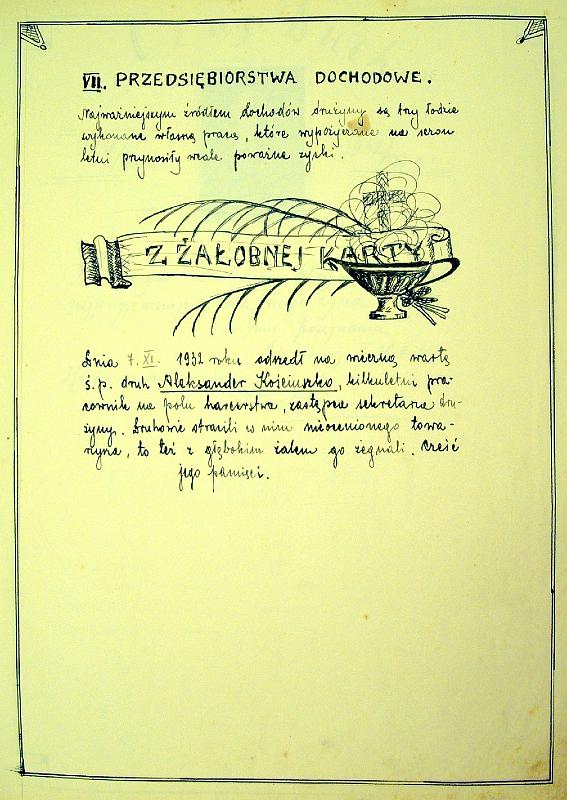 VII. PRZEDSIĘBIORSTWA DOCHODOWE.
Najważniejszym źródłem dochodów drużyny są trzy łodzie
wykonane własną pracą, które wypożyczane na sezon
letni przynosiły wcale poważne zyski.
Z ŻAŁOBNEJ KARTY
Dnia 7. XI. 1932 roku odszedł na wieczną wartę
ś.p. druh Aleksander Kościuszko, kilkuletni pra-
cownik na polu harcerstwa, zastępca sekretarza dru-
żyny. Druhowie stracili w nim nieocenionego towa-
rzysza, to też z głębokim żalem go żegnali. Cześć
jego pamięci.